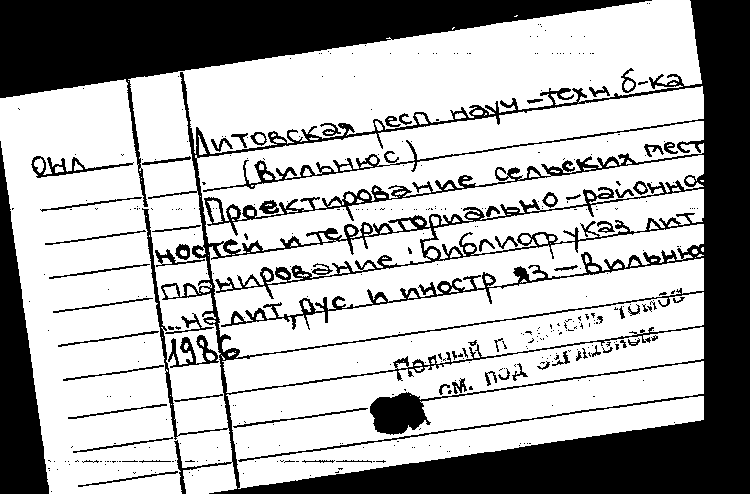 Литовская респ. науч.-техн. б-ка
ОНЛ
(Вильнюс)
Проектирование сельских мест
ностей и территориально-районное
планирование: Библиогр указ лит.
...на лит., рус. и иностр яз — Вильнюс
1986
Полный п томов
см. под заглавием